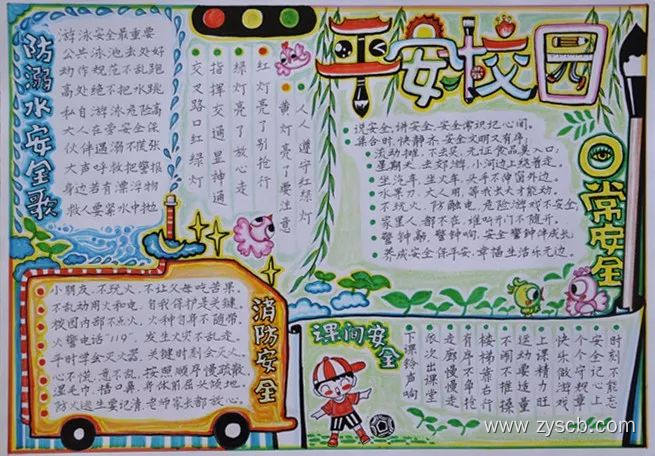 平安校园
防溺水安全歌
游泳安全最重要
公共泳池去处好
动作规范不乱跑
高处绝不把水跳
私自游泳危险高
大人在旁安全保
伙伴遇溺不慌张
大声呼救把警报
身边若有漂浮物
救人要紧水中抛
人人遵守红绿灯
黄灯亮了要注意
红灯亮了别抢行
绿灯亮了放心走
指挥交通显神通
交叉路口红绿灯
日常安全
说安全,讲安全,安全常识记心间。
集合时,快静齐,安全文明又有序。
流动摊,不去买,无证食品莫入口。
星期天,去郊游,小河边上绕着走。
坐汽车,坐火车,头手不伸窗外边。
水果刀,大人用,等我长大才能动。
不玩火,防触电,危险游戏不安全。
家里人,都不在,谁叫开门不随开。
警钟敲,警钟响,安全警钟伴成长。
养成安全保平安,幸福生活乐无边。
消防安全
小朋友,不玩火,不让父母吃苦果。
不乱动用火和电,自我保护是关键。
校园内部不点火,火种自身不随带。
火警电话"119",发生火灾不乱走。
平时学会灭火器,关键时刻会灭火。
心不慌,意不乱,按照顺序慢疏散。
湿毛巾,捂口鼻,身体前屈头须地。
防火逃生要记清,老师家长都放心。
课间安全
时刻不能忘
安全记心上
个个守规章
快乐做游戏
上课精力旺
运动要适量
不闹不推操
楼梯靠右行
有序不拥挤
走廊慢慢走
依次出课堂
下课铃声响
www.zyscb.com